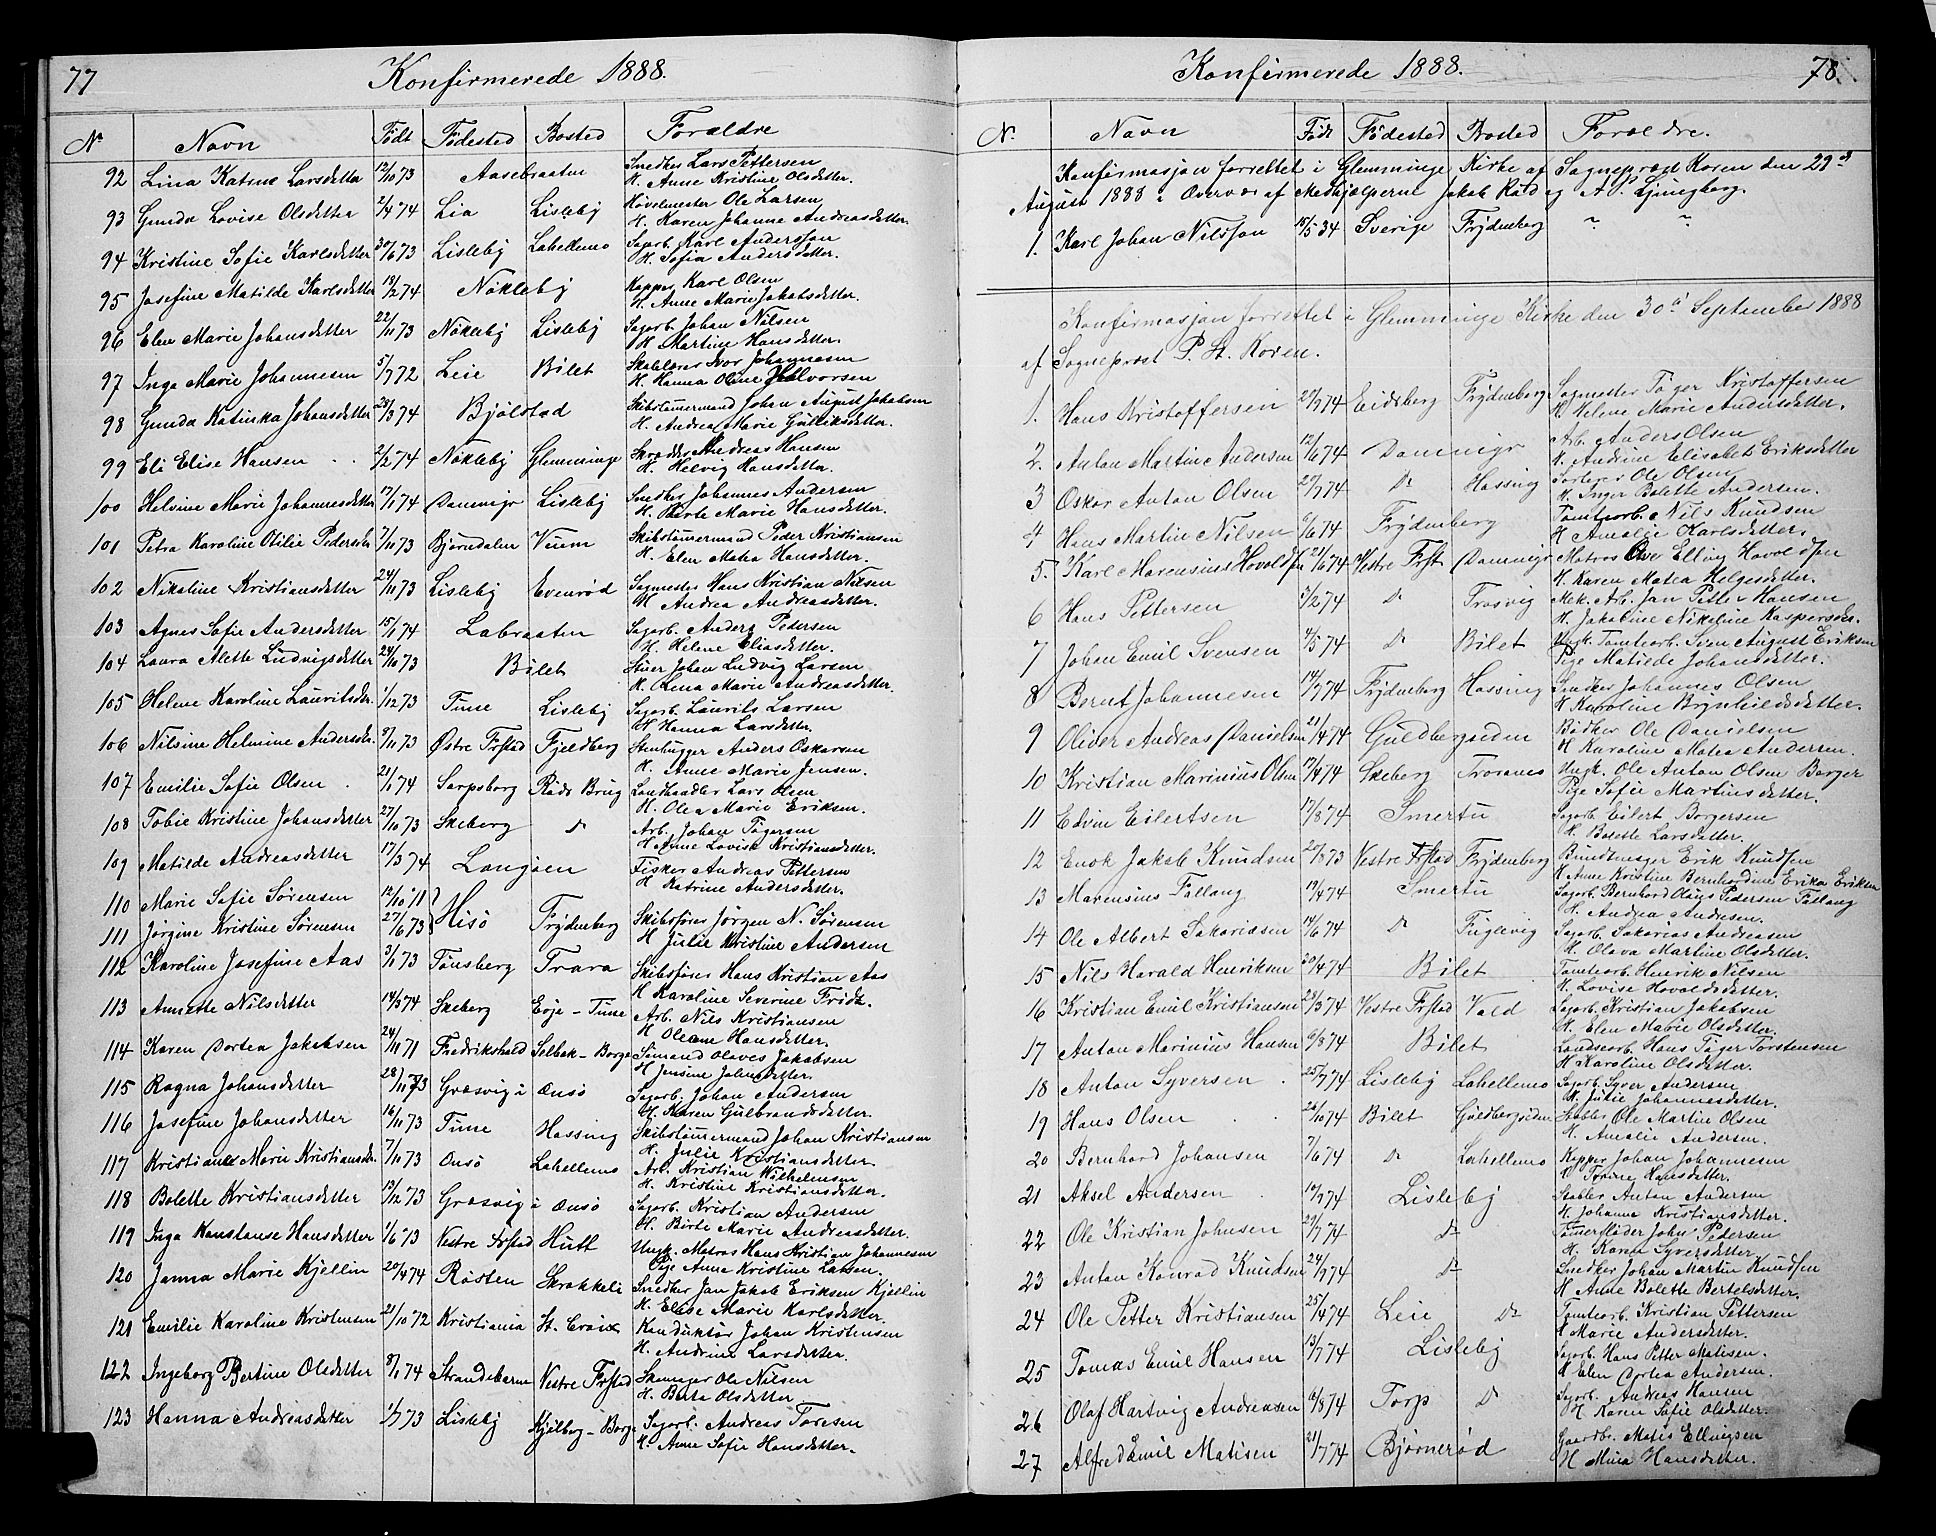 77
Konfirmerede 1888.
Nr Navn Født Fødested Bosted Forældre
92 Lina Katrine Larsdatter 12/10 73 Aasebraaten Snedker Lars Pettersen
H. Anne Kristine Olsdetter.
93 Gunda Lovise Olsdetter 2/4 74 Lia Lisleby Høvelmester Ole Larsen
H. Karen Johanne Andreasdetter.
94 Kristine Sofie Karlsdetter 30/6 73 Lisleby Lahellemo Sagarb. Karl Andersson
H. Sofia Andersdetter.
95 Josefine Matilde Karlsdetter 19/2 74 Nökleby Kopper Karl Olsen
H. Anne Marie Jakobsdetter.
96 Elen Marie Johansdetter 22/11 73 Nökleby Lisleby Sagarb. Johan Nilsen
H. Martine Hansdetter.
97 Inga Marie Johannesen 5/7 72 Leie Bilet Skolelærer Ivar Johannesen
H. Hanna Oline Halvorsen
98 Gunda Katinka Johansdetter 28/3 74 Bjölstad Skibstömermand John August Jakobsen
H. Andrea Marie Gulliksdetter.
99 Eli Elise Hansen 2/2 74 Nökleby Glemminge Skrædder Andreas Hansen
H. Helvig Hansdetter.
100 Helvine Marie Johannesdetter 17/1 74 Dammyr Lisleby Snedker Johannes Andersen
H. Berte Marie Hansdetter.
101 Petra Karoline Otilie Pedersdr. 7/10 73 Bjørndalen Vuum Skibstömermand Peder Kristiansen
H. Elen Matea Hansdetter.
102 Nikoline Kristiansdetter 24/11 73 Lisleby Evenrød Sagmester Hans Kristian Nilsen
H. Andrea Andreasdetter.
103 Agnes Sofie Andersdetter 15/1 74 Labraaten Sagarb. Anders Pedersen
H. Helene Eliasdetter.
104 Laura Alette Ludvigsdetter 24/10 73 Bilet Stuer Johan Ludvig Larsen
H. Lena Marie Andreasdetter.
105 Helene Karoline Lauritsdr. 1/12 73 Tune Lisleby Sagarb. Laurits Larsen
H. Hanna Larsdetter.
106 Nilsine Helmine Andersdr. 8/11 73 Østre Frstad Fjeldberg Stenhugger Anders Oskarsen
H. Anne Marie Jensen.
107 Emilie Sofie Olsen 21/1 74 Sarpsborg Rads Brug Landhandler Lars Olsen
H. Olea Marie Eriksen.
108 Tobie Kristine Johansdetter 27/10 73 Skeberg do Arb. Johan Tögersen
H. Anne Lovise Kristiansdetter.
109 Matilde Andreasdetter 17/3 74 Langøen Fisker Andreas Pettersen
H. Katrine Andersdetter.
110 Marie Sofie Sörensen 12/10 71
111 Jörgine Kristine Sörensen 27/6 73 Hisö Frydenberg Skibsfører Jørgen N. Sörensen
H. Julie Kristine Andersen
112 Karoline Josefine Aas 3/1 73 Tönsberg Trara Skibsfører Hans Kristian Aas
H. Karoline Severine Fridt.
113 Annette Nilsdetter 14/3 74 Skeberg Eöje - Tune Arb. Nils Kristiansen
H. Oleane Hansdetter.
114 Karen Dortea Jakobsen 24/11 71 Fredrikshald Selbak - Borge Sömand Olaves Jakobsen
H. Jensine Johnsdetter.
115 Ragna Johansdetter 28/10 73 Græsvig i Onsö Sagarb. Johan Andersen
H. Karen Gulbrandsdetter.
116 Josefine Johansdetter 16/11 73 Tune Hassing Skibstömermand Johan Kristiansen
H. Julie Kristiansdetter.
117 Kristiane Marie Kristiansdr. 7/11 73 Onsö Lahellemo Arb. Kristian Wilhelmsen
H. Kristine Kristiansdetter.
118 Bolette Kristiansdetter 13/12 73 Græsvig i Onsö Sagarb. Kristian Andersen
H. Birte Marie Andreasdetter.
119 Inga Konstanse Hansdetter 1/6 73 Vestre Frstad Hutt Ungk. Matros Hans Kristian Johannesen
Pige Anne Kristine Larsen.
120 Janna Marie Kjellin 20/4 74 Røsten Skrakkeli Snedker Jan Jakob Eriksen Kjellin
H. Elise Marie Karlsdetter.
121 Emilie Karoline Kristensen 21/10 72 Kristiania St. Croix Konduktør Johan Kristensen
H. Andrine Larsdetter.
122 Ingeborg Bertine Olsdetter 8/1 74 Strandebarm Vestre Frstad Skomager Ole Nilsen
H. Berta Olsdetter.
123 Hanna Andreasdetter 1/7 73 Lisleby Kjölberg - Borge Sagarb. Andreas Toresen
H. Anne Sofie Hansdetter.
Konfirmerede 1888.
78.
N. Navn Födt Födested Bosted Foroeldre.
Konfirmasjon forrettet i Glemminge Kirke af Sogneprest Koren den 29d
August 1888 i Overvær af Medhjælperne Jakob Röd og A. P. Ljungberg.
1. Karl Johan Nilsson 15/5 34 Sverige Frydenberg " "
Konfirmasjon forrettet i Glemminge Kirke den 30d September 1888
af Sogneprost P. St. Koren.
1. Hans Kristoffersen 27/7 74 Eidsberg Frydenberg Sagmester Töger Kristoffersen
H. Helene Marie Andersdetter.
2. Anton Martin Andersen 12/6 74 Dammyr Arb. Anders Olsen
H. Andrine Elisabet Eriksdetter
3 Oskar Anton Olsen 27/7 74 do Hassing Sorterer Ole Olsen
H. Inger Bolette Andersen.
4 Hans Martin Nilsen 6/6 74 Frydenberg Tomtearb. Nils Knudsen
H. Amalie Karlsdetter.
5. Karl Marensius Hovoldsen 21/6 74 Vestre Frst Dammyr Matros Elling Hovoldsen
H. Karen Matea Helgesdetter.
6 Hans Pettersen 5/2 74 do Trosvig Mek. Arb. Jan Petter Hansen
H. Jakobine Nikoline Kaspersdr.
7 Johan Emil Svensen 4/5 74 do Bilet Ungk. Tomtearb. Sven August Eriksen
Pige Matilde Johansdetter.
8 Bernt Johannesen 14/7 74 Frydenberg Hassing Snedker Johannes Olsen
H. Karoline Brynhildsdetter.
9 Oliver Andreas Danielsen 21/4 74 Guldbergsiden Bødker Ole Danielsen
H. Karoline Matea Andersen.
10 Kristian Marinius Olsen 17/4 74 Skeberg Trosvnes Ungk. Ole Anton Olsen Borger
Pige Sofie Martinsdetter.
11 Edvin Eilertsen 17/8 74 Smertu Sagarb. Eilert Borgersen
H. Bolette Larsdatter.
12 Enok Jakob Knudsen 27/8 73 Vestre Frstad Frydenberg Bundtmager Erik Knudsen
H. Anne Kristine Bernhardine Erika Eriksen
13 Marensius Fallang 19/4 74 Smertu Sagarb. Bernhard Olaus Pedersen Fallang
H. Andrea Andresen.
14 Ole Albert Sakariasen 14/6 74 do Fuglevig Sagarb. Sakarias Andreasen
H. Olava Martine Olsdetter.
15 Nils Harald Henriksen 20/4 74 Bilet Tomtearb. Henrik Nilsen
H. Lovise Hovoldsdetter.
16 Kristian Emil Kristiansen 23/3 74 Vestre Frstad Vald Sagarb. Kristian Jakobsen
H. Elen Marie Olsdetter.
17 Anton Marinius Hansen 6/8 74 Bilet Landsearb. Hans Töger Torstensen
H. Karoline Olsdetter.
18 Anton Syversen 25/7 74 Lisleby Lahellemo Sagarb. Syver Andersen
H. Julie Johannesdetter.
19 Hans Olsen 26/10 74 Bilet Guldbergsiden Stabler Ole Martin Olsen
H. Amalie Andersen.
20 Bernhard Johansen 7/6 74 do Lahellemo Kopper Johan Johannesen
H. Torine Hansdetter.
21 Aksel Andersen 10/7 74 Lisleby Stabler Anton Andersen
H. Johanne Kristiansdetter.
22 Ole Kristian Johnsen 29/7 74 do Tömerfløder John Pedersen
H. Karen Syversdetter.
23 Anton Konrad Knudsen 24/7 74 do Snedker Johan Martin Knudsen
H. Anne Bolette Bertelsdetter.
24 Ole Petter Kristiansen 25/4 74 Leie do Tomtearb. Kristian Pettersen
H. Marie Andersdetter.
25 Tomas Emil Hansen 13/7 74 Lisleby Sagarb. Hans Petter Matisen.
H. Elen Dortea Andersen.
26 Olaf Hartvig Andreasen 14/8 74 Torp do Sagarb. Andreas Hansen
H. Karen Sofie Olsdetter.
27 Alfred Emil Matisen 21/7 74 Bjørnerød Gaardbr. Matis Ellingsen
H. Mina Hansdetter.